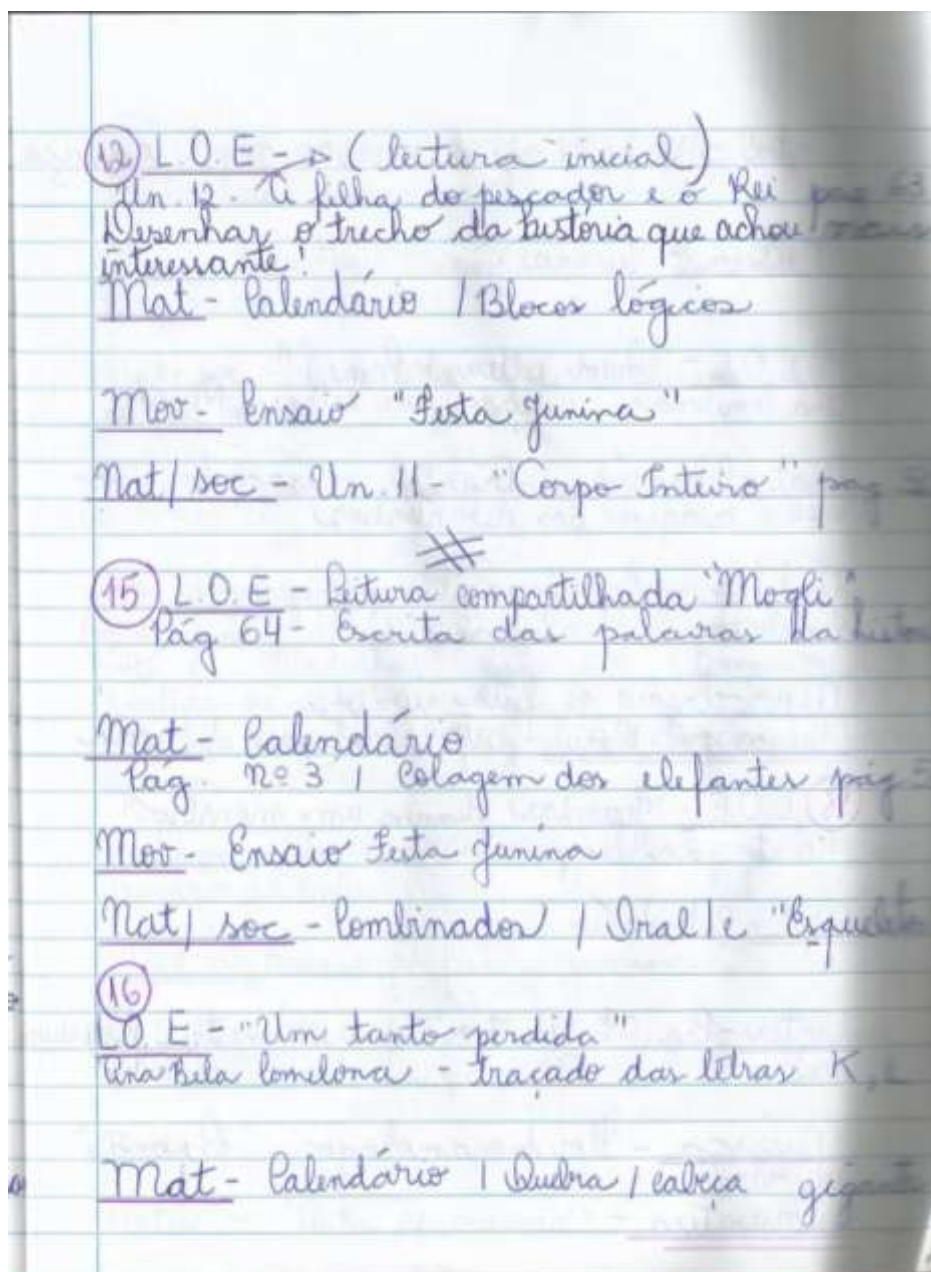 12 L.O.E → (leitura inicial)
Un. 12. A filha do pescador e o Rei pag 63
Desenhar o trecho da história que achou mais
interessante!
Mat - Calendário / Blocos lógicos
Mov - Ensaio "Festa Junina"
Nat/soc - Un. 11 - "Corpo Inteiro" pag
15 L.O.E - Leitura compartilhada "Mogli"
Pág 64 - Escrita das palavras da
Mat - Calendário
Pág. nº 3 / Colagem dos elefantes pág
Mov - Ensaio Festa Junina
Nat/soc - Combinados / Oral/e "Esqueleto
16
L.O.E - "Um tanto perdida"
Ana Bela Comilona - traçado das letras K, L
Mat - Calendário / Quebra / cabeça gigante